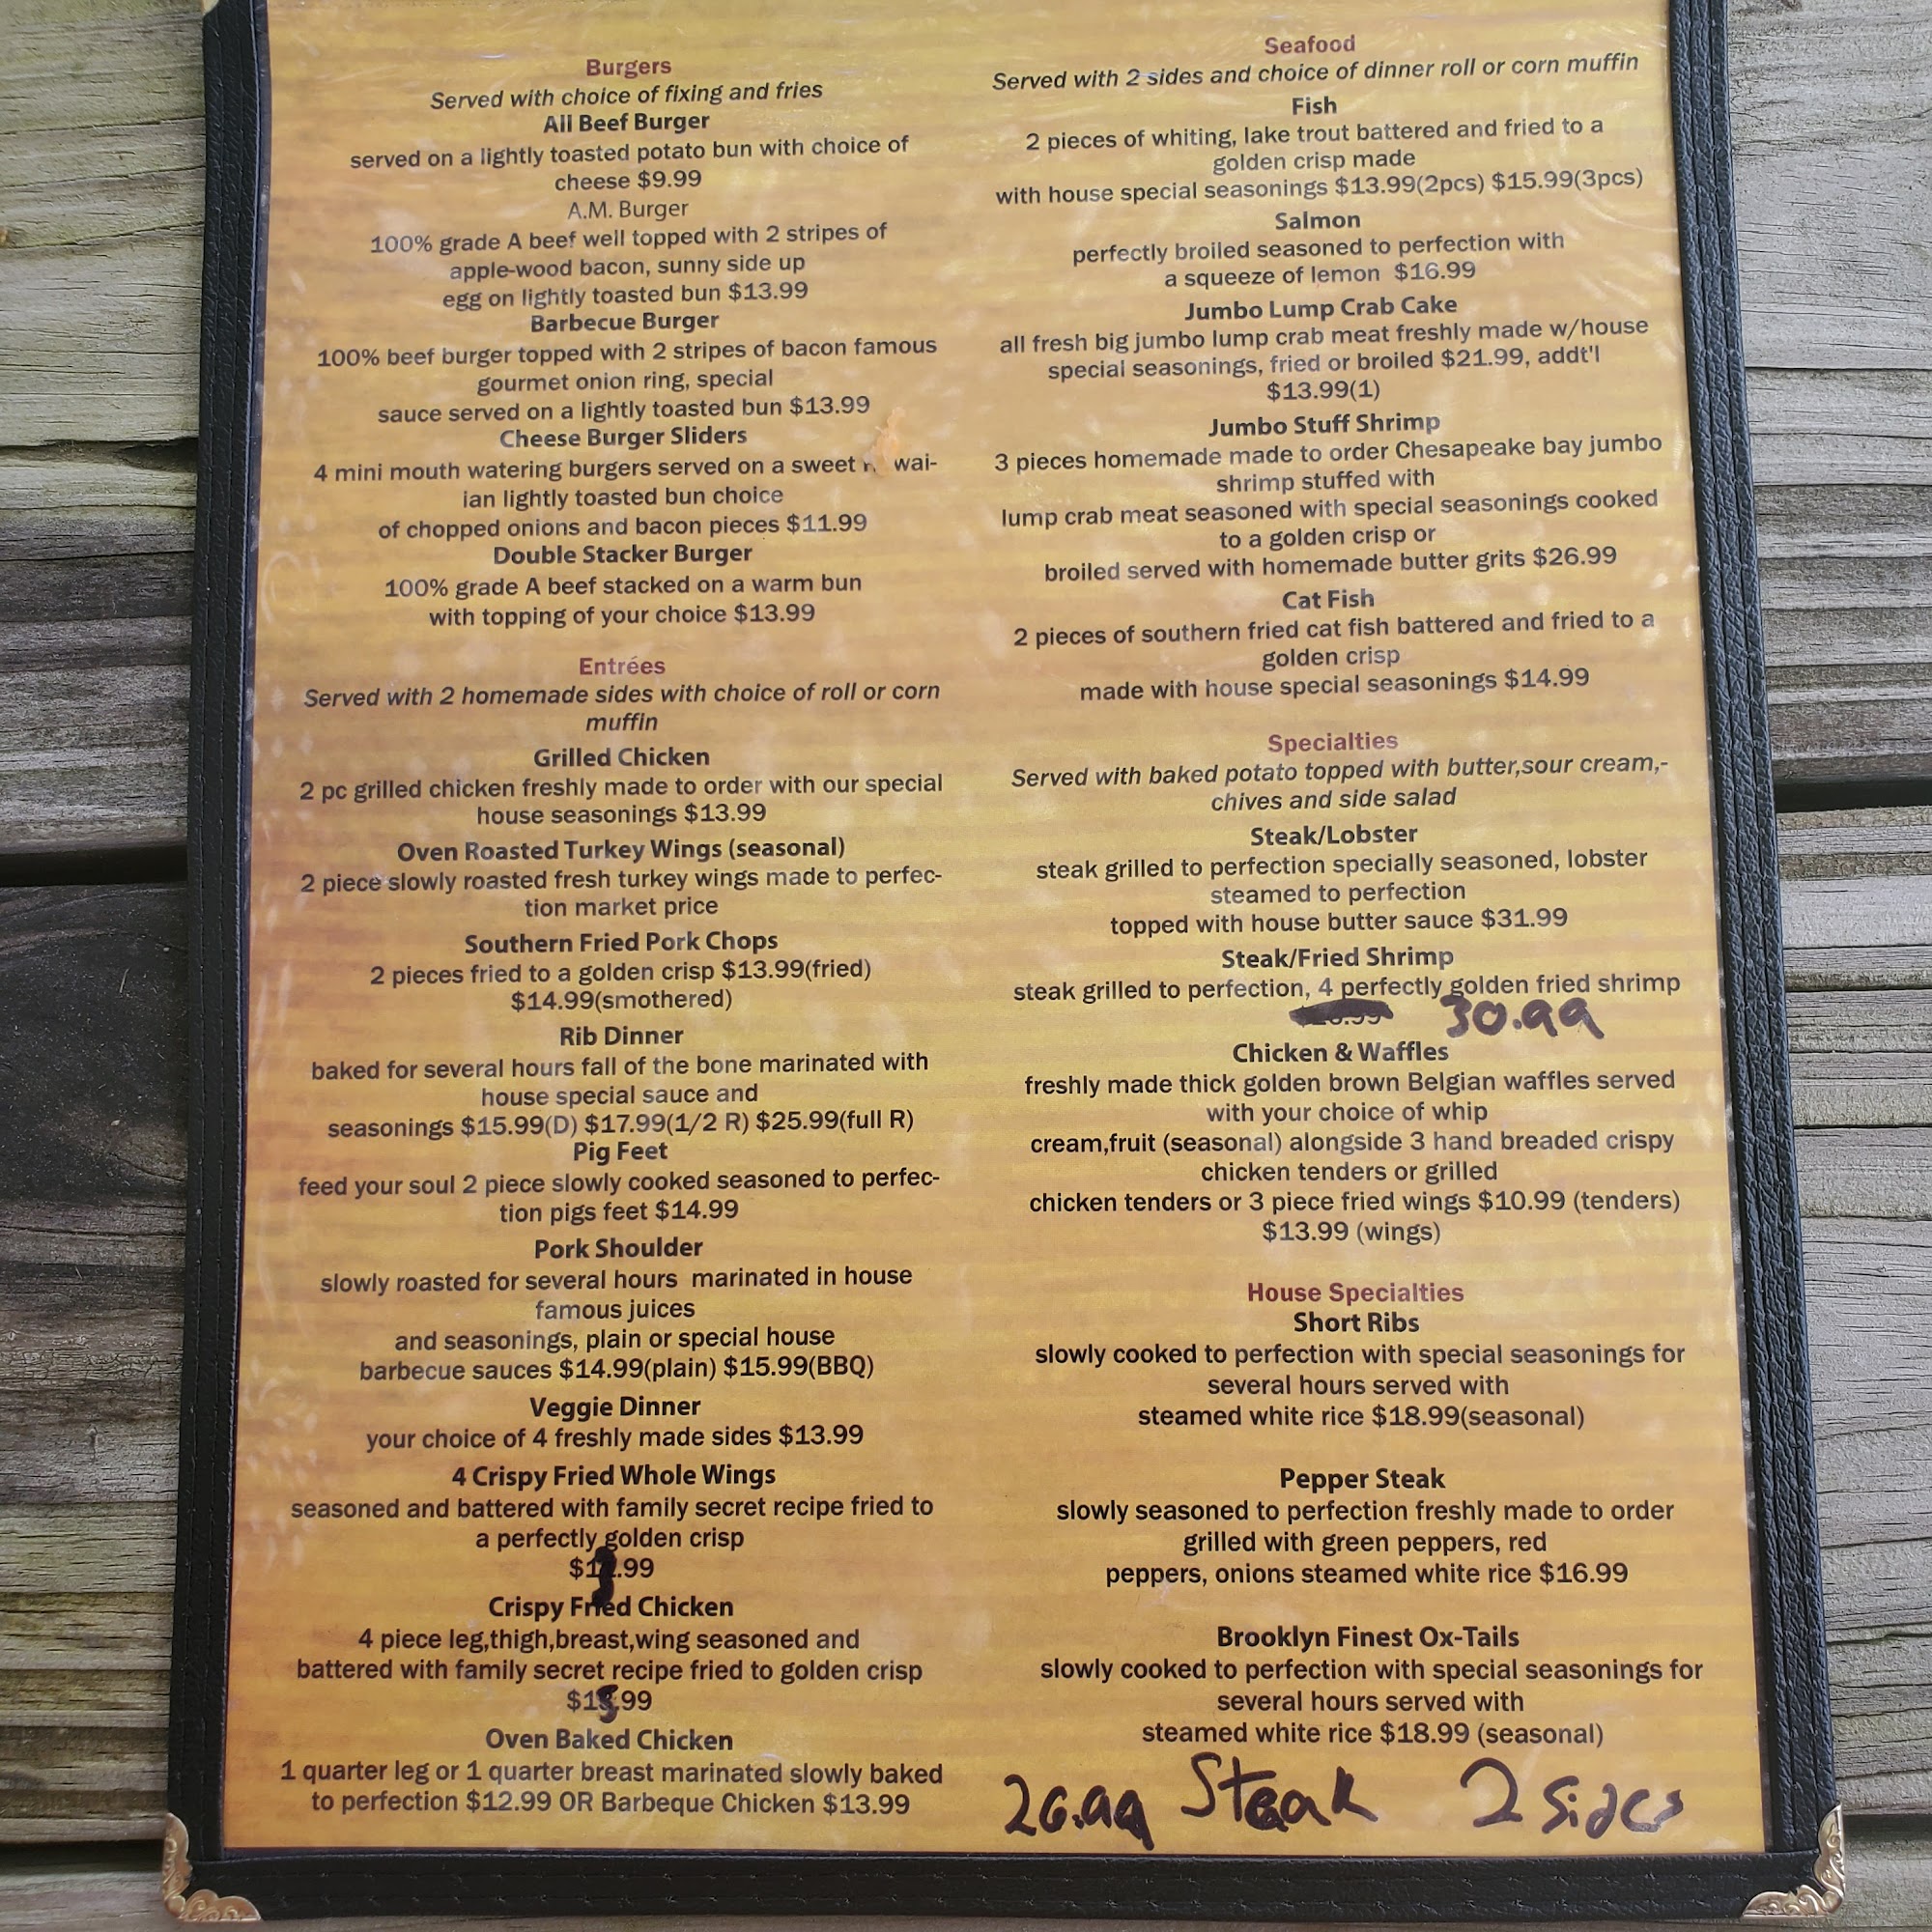 Burgers
Served with choice of fixing and fries
All Beef Burger
served on a lightly toasted potato bun with choice of
cheese $9.99
A.M. Burger
100% grade A beef well topped with 2 stripes of
apple-wood bacon, sunny side up
egg on lightly toasted bun $13.99
Barbecue Burger
100% beef burger topped with 2 stripes of bacon famous
gourmet onion ring, special
sauce served on a lightly toasted bun $13.99
Cheese Burger Sliders
4 mini mouth watering burgers served on a sweet wai-
ian lightly toasted bun choice
of chopped onions and bacon pieces $11.99
Double Stacker Burger
100% grade A beef stacked on a warm bun
with topping of your choice $13.99
Entrées
Served with 2 homemade sides with choice of roll or corn
muffin
Grilled Chicken
2 pc grilled chicken freshly made to order with our special
house seasonings $13.99
Oven Roasted Turkey Wings (seasonal)
2 piece slowly roasted fresh turkey wings made to perfec-
tion market price
Southern Fried Pork Chops
2 pieces fried to a golden crisp $13.99(fried)
$14.99(smothered)
Rib Dinner
baked for several hours fall of the bone marinated with
house special sauce and
seasonings $15.99(D) $17.99(1/2 R) $25.99(full R)
Pig Feet
feed your soul 2 piece slowly cooked seasoned to perfec-
tion pigs feet $14.99
Pork Shoulder
slowly roasted for several hours marinated in house
famous juices
and seasonings, plain or special house
barbecue sauces $14.99(plain) $15.99(BBQ)
Veggie Dinner
your choice of 4 freshly made sides $13.99
4 Crispy Fried Whole Wings
seasoned and battered with family secret recipe fried to
a perfectly golden crisp
Crispy Fried Chicken
4 piece leg,thigh,breast,wing seasoned and
battered with family secret recipe fried to golden crisp
Oven Baked Chicken
1 quarter leg or 1 quarter breast marinated slowly baked
to perfection $12.99 OR Barbeque Chicken $13.99
Seafood
Served with 2 sides and choice of dinner roll or corn muffin
Fish
2 pieces of whiting, lake trout battered and fried to a
golden crisp made
with house special seasonings $13.99(2pcs) $15.99(3pcs)
Salmon
perfectly broiled seasoned to perfection with
a squeeze of lemon $16.99
Jumbo Lump Crab Cake
all fresh big jumbo lump crab meat freshly made w/house
special seasonings, fried or broiled $21.99, addt'l
$13.99(1)
Jumbo Stuff Shrimp
3 pieces homemade made to order Chesapeake bay jumbo
shrimp stuffed with
lump crab meat seasoned with special seasonings cooked
to a golden crisp or
broiled served with homemade butter grits $26.99
Cat Fish
2 pieces of southern fried cat fish battered and fried to a
golden crisp
made with house special seasonings $14.99
Specialties
Served with baked potato topped with butter,sour cream,-
chives and side salad
Steak/Lobster
steak grilled to perfection specially seasoned, lobster
steamed to perfection
topped with house butter sauce $31.99
Steak/Fried Shrimp
steak grilled to perfection, 4 perfectly golden fried shrimp
30.99
Chicken & Waffles
freshly made thick golden brown Belgian waffles served
with your choice of whip
cream,fruit (seasonal) alongside 3 hand breaded crispy
chicken tenders or grilled
chicken tenders or 3 piece fried wings $10.99 (tenders)
$13.99 (wings)
House Specialties
Short Ribs
slowly cooked to perfection with special seasonings for
several hours served with
steamed white rice $18.99(seasonal)
Pepper Steak
slowly seasoned to perfection freshly made to order
grilled with green peppers, red
peppers, onions steamed white rice $16.99
Brooklyn Finest Ox-Tails
slowly cooked to perfection with special seasonings for
several hours served with
steamed white rice $18.99 (seasonal)
26.99 Steak 2 Sides